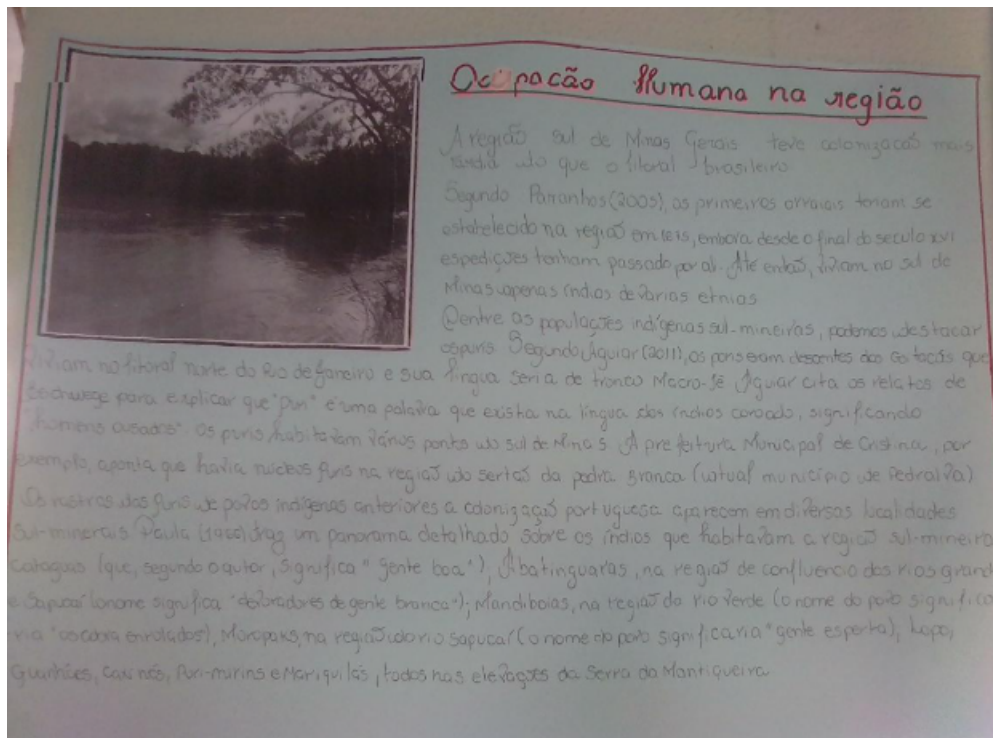 Ocupação Humana na região
A região sul de Minas Gerais teve colonizacaõ mais
tardia do que o litoral brasileiro
Segundo Parranhos (2005), os primeiros arraiais teriam se
estabelecido na regiaõ em, embora desde o final do seculo xvi
expedições tenham passado por ali. Até entaõ, viviam no sul de
Minas apenas índios de varias etnias
Dentre as populações indígenas sul-mineiras, podemos destacar
os puris Segundo Aguiar (2011), os puris eram descentes dos Go tacás que
Viviam no litoral norte do Rio de Janeiro e sua língua seria de tronco Macro-Jê Aguiar cita os relatos de
Eschwege para explicar que "puri" é uma palavra que existia na língua dos índios coroado, significando
"homens ousados" os puris, habitavam vários ponto do sul de Minas A prefeitura Municipal de Cristina, por
exemplo, aponta que havia nucleos puris na regiaõ do sertaõ da pedra Branca (atual município de Pedralva)
Os rastros dos puris de povos indígenas anteriores a colonizaçaõ portuguesa aparecem em diversas localidades
Sul-minerais Paula traz um panorama detalhado sobre os índios que habitavam a regiaõ sul-mineira
Cataguas (que, segundo o autor, significa "gente boa"), Abatinguaras, na regiaõ de confluencia dos rios grand
e Sapucaí (o nome significa "devoradores de gente branca"); Mandiboias, na regiaõ do rio Verde (o nome do povo significa
ria "os cobra enrolados), na regiaõ do rio Sapucaí (o nome do povo significaria "gente esperta), Lopo,
Guanhães, Carinós, Puri-mirins e Mariquitas, todos nas elevações da Serra da Mantiqueira